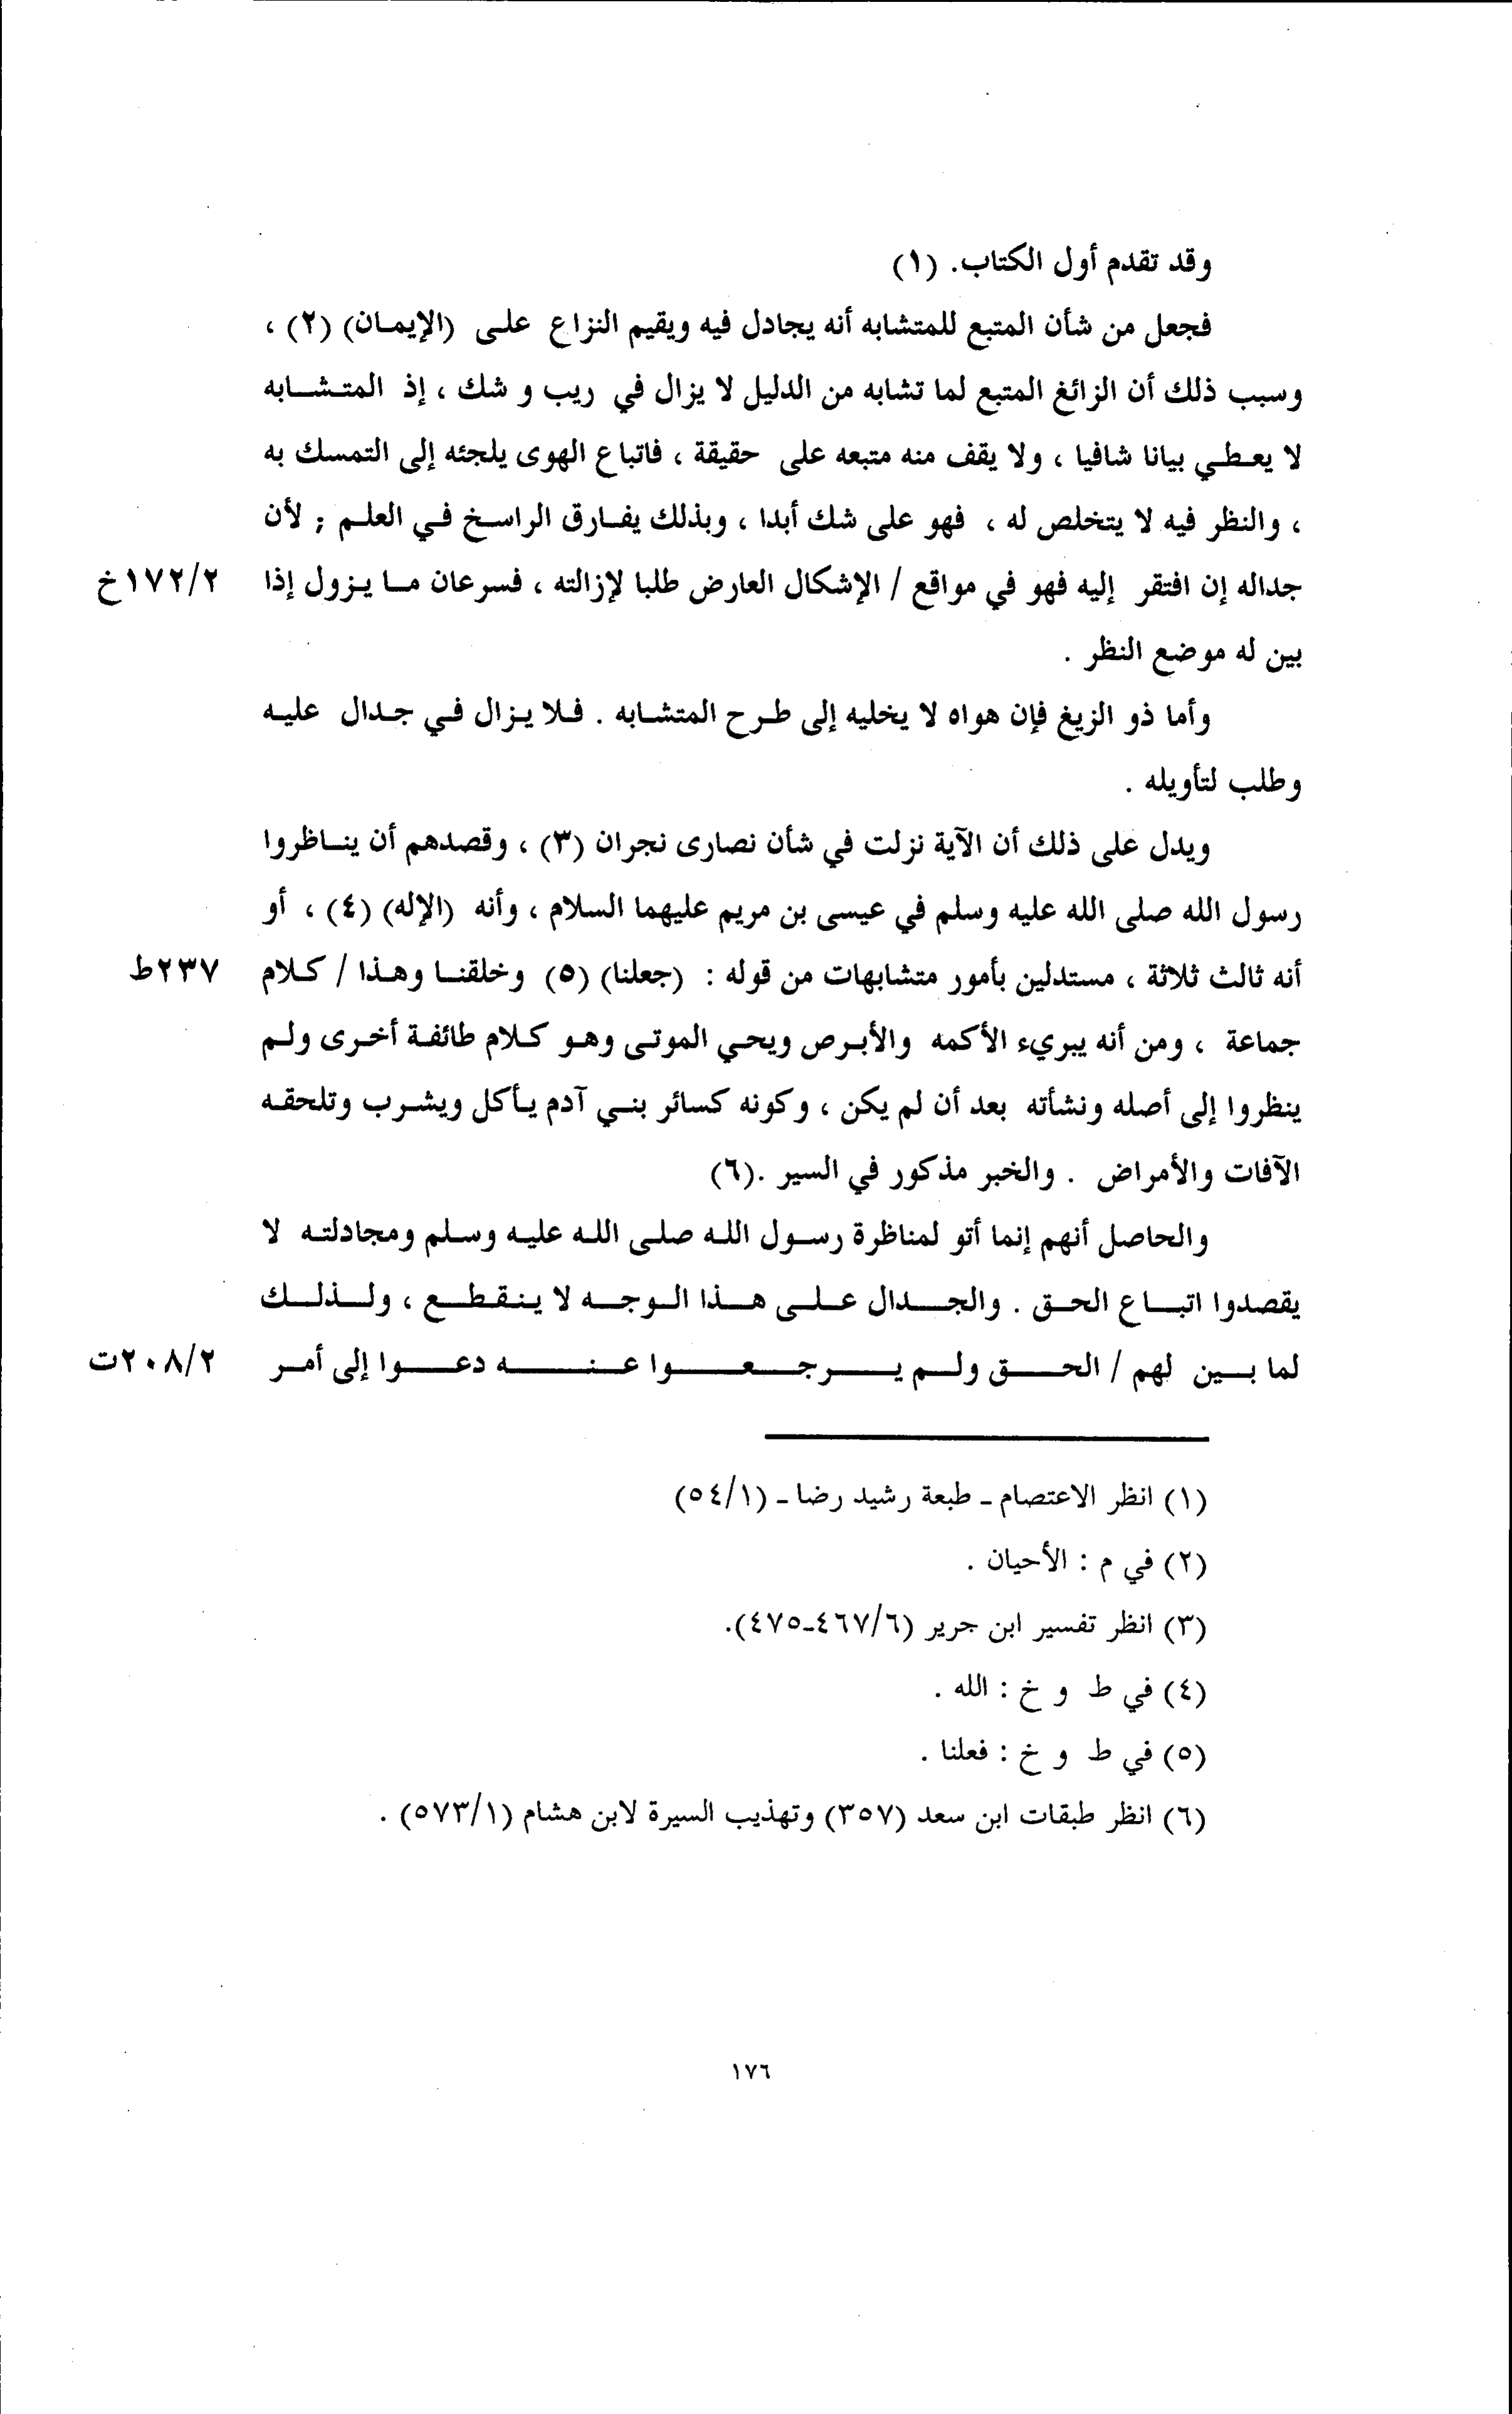 وقد تقدم أول الكتاب. (١)
فجعل من شأن المتبع للمتشابه أنه يجادل فيه ويقيم النزاع على (الإيمان) (٢) ،
وسبب ذلك أن الزائغ المتبع لما تشابه من الدليل لا يزال في ريب و شك ، إذ المتشابه
لا يعطي بيانا شافيا ، ولا يقف منه متبعه على حقيقة ، فاتباع الهوى يلجئه إلى التمسك به
، والنظر فيه لا يتخلص له ، فهو على شك أبدا ، وبذلك يفارق الراسخ في العلم ; لأن
جداله إن افتقر إليه فهو في مواقع / الإشكال العارض طلبا لإزالته ، فسرعان ما يزول إذا ١٧٢/٢خ
بين له موضع النظر .
وأما ذو الزيغ فإن هواه لا يخليه إلى طرح المتشابه . فلا يزال في جدال عليه
وطلب لتأويله .
ويدل على ذلك أن الآية نزلت في شأن نصارى نجران (٣) ، وقصدهم أن يناظروا
رسول الله صلى الله عليه وسلم في عيسى بن مريم عليهما السلام ، وأنه (الإله) (٤) ، أو
أنه ثالث ثلاثة ، مستدلين بأمور متشابهات من قوله : (جعلنا) (٥) وخلقنا وهذا / كلام ٢٣٧ط
جماعة ، ومن أنه يبريء الأكمه والأبرص ويحي الموتى وهو كلام طائفة أخرى ولم
ينظروا إلى أصله ونشأته بعد أن لم يكن ، وكونه كسائر بني آدم يأكل ويشرب وتلحقه
الآفات والأمراض . والخبر مذكور في السير .(٦)
والحاصل أنهم إنما أتو لمناظرة رسول الله صلى الله عليه وسلم ومجادلته لا
يقصدوا اتباع الحق . والجدال على هذا الوجه لا ينقطع ، ولذلك
لما بين لهم / الحق ولم يرجعوا عنه دعوا إلى أمر ٢٠٨/٢ت
(١) انظر الاعتصام - طبعة رشيد رضا - (٥٤/١)
(٢) في م : الأحيان .
(٣) انظر تفسير ابن جرير (٤٦٧/٦-٤٧٥).
(٤) في ط و خ : الله .
(٥) في ط و خ : فعلنا .
(٦) انظر طبقات ابن سعد (٣٥٧) وتهذيب السيرة لابن هشام (٥٧٣/١) .
١٧٦